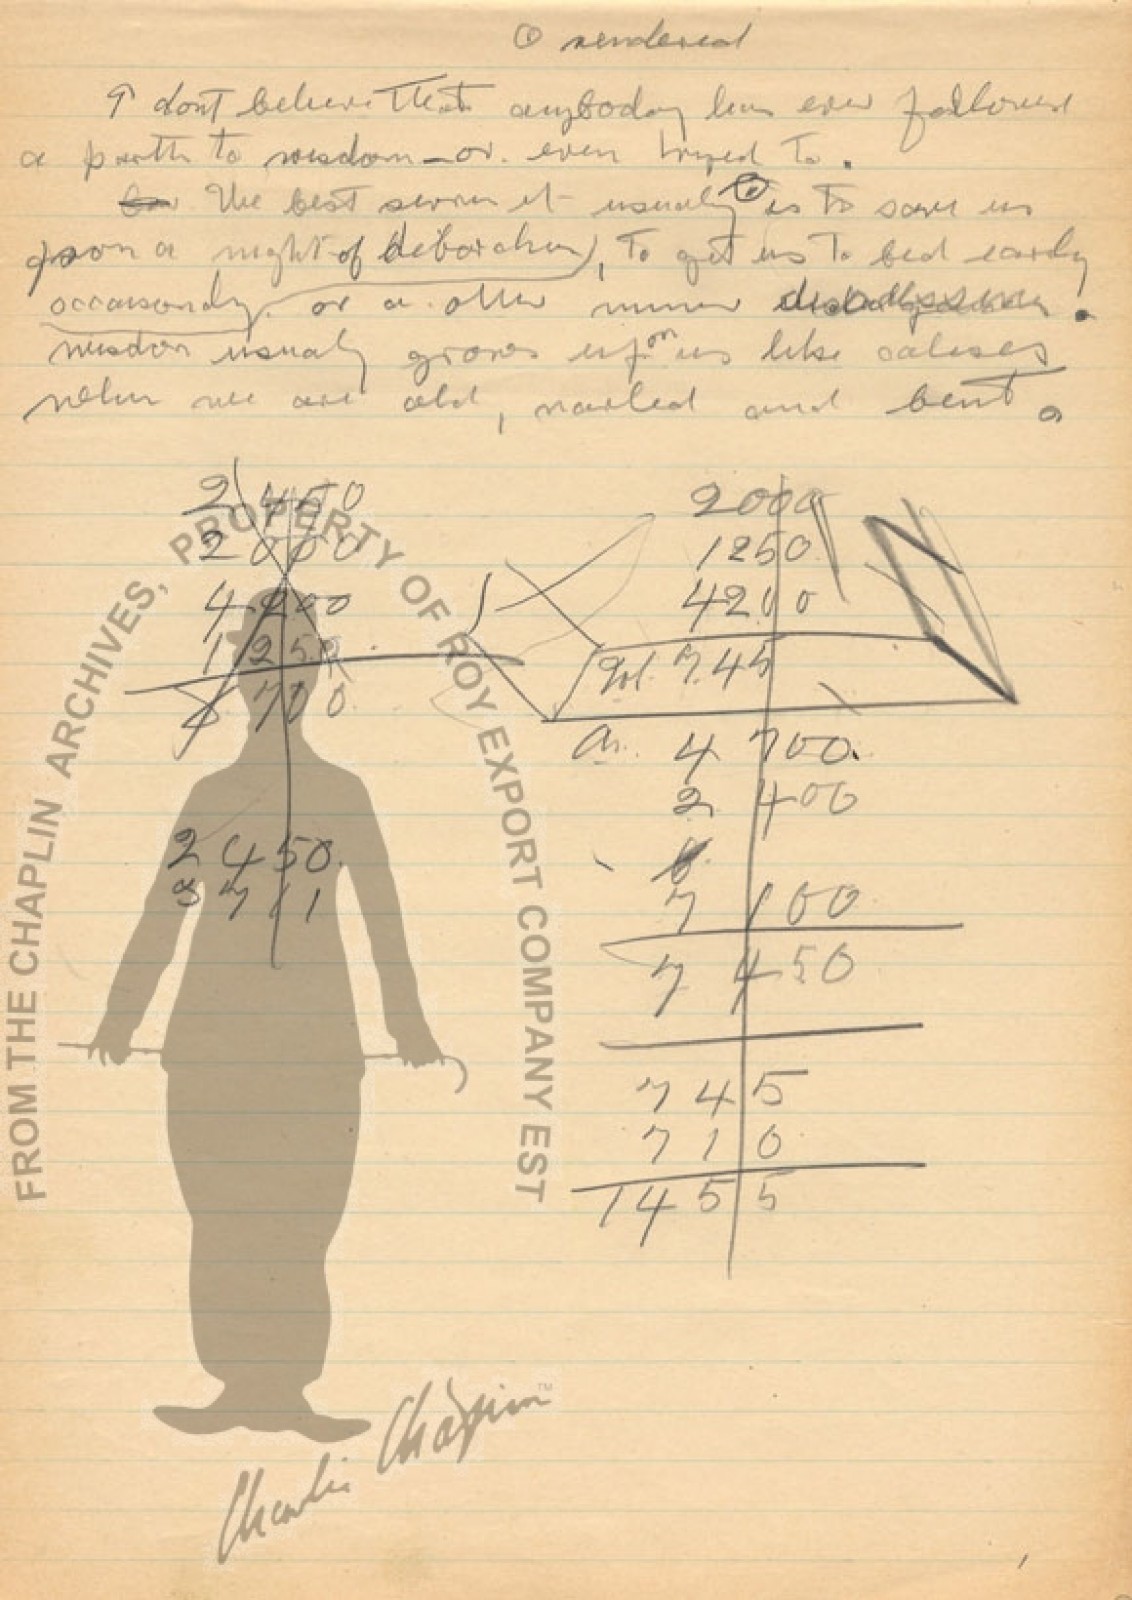 ① rendered
I dont believe that anybody has ever followed
a path to wisdom – or even tryed to.
The best servis it usually ① is to save us
from a night of debarchury, to get us to bed early
occasionaly. or a other minor
wisdom usualy grows up on us like caluses
when we are old, narled and bent.
2 450
2000
4200
1250
8 700.
2450.
3711
2000
1250
4200
Tot. 745
4 700.
2 400
6
7 100
7 450
745
710
1455
FROM THE CHAPLIN ARCHIVES, PROPERTY OF ROY EXPORT COMPANY EST
Charlie Chaplin™